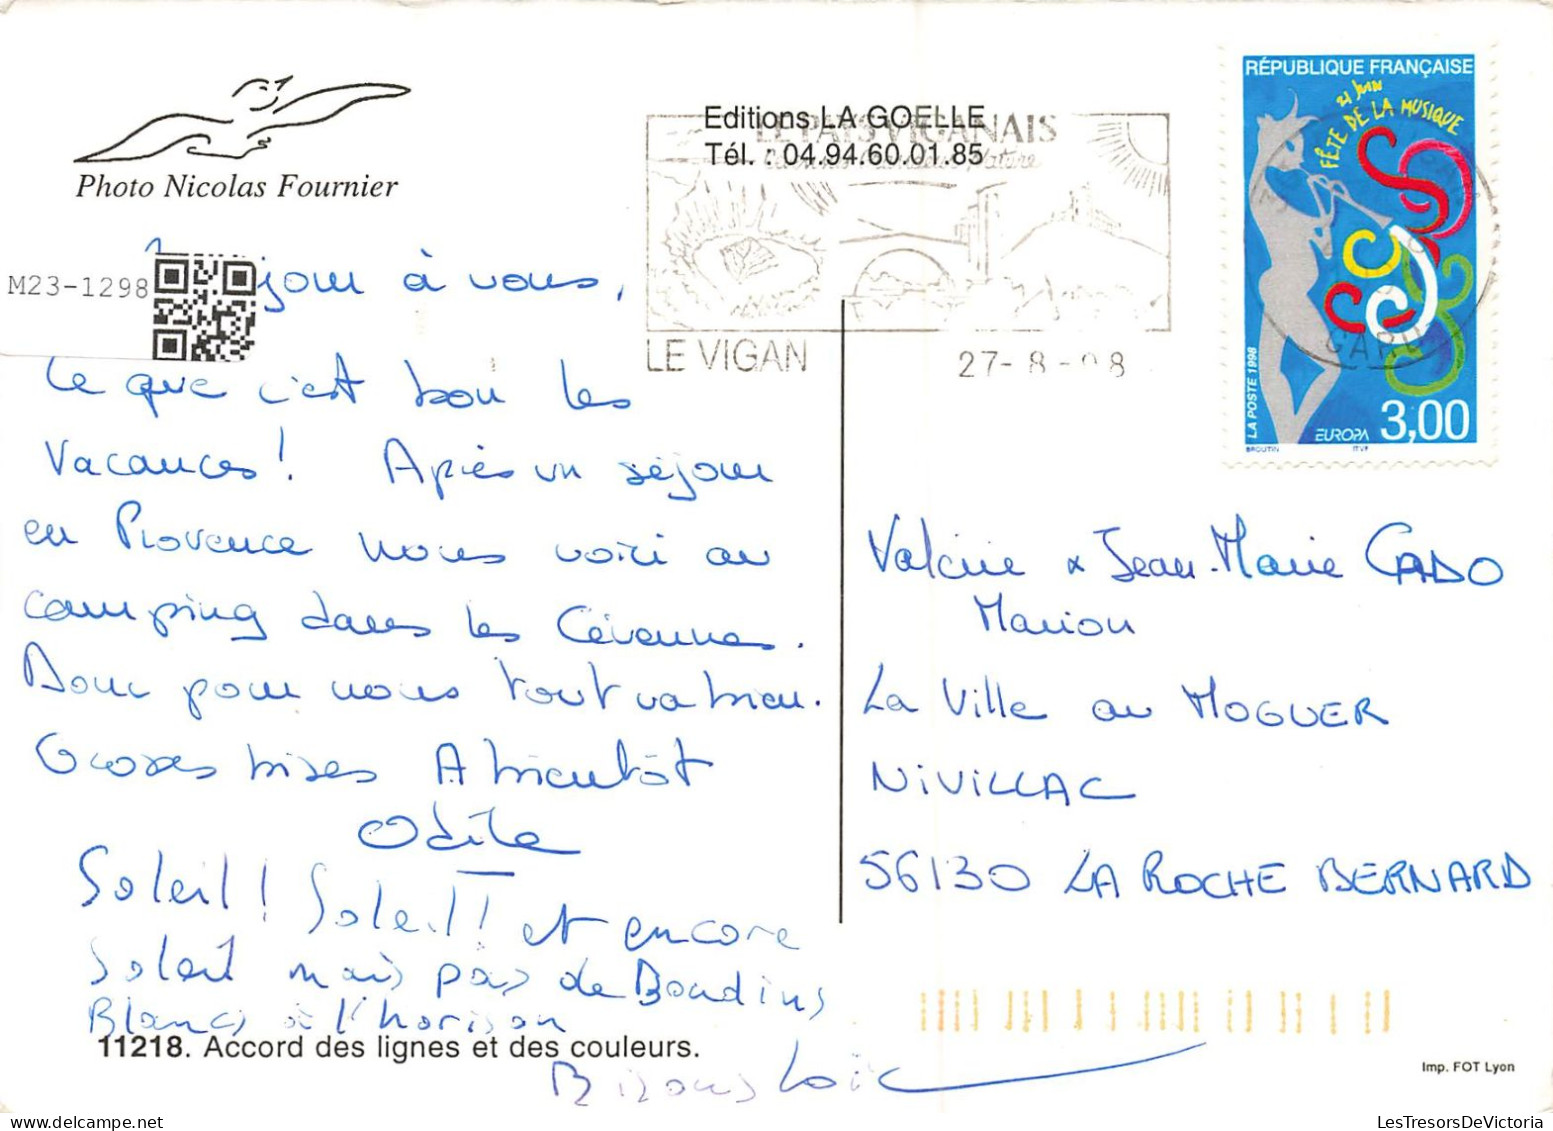 Photo Nicolas Fournier
Editions LA GOELLE
Tél. : 04.94.60.01.85
LE PAYS VIGANAIS
LE VIGAN
27-8-98
RÉPUBLIQUE FRANÇAISE
21 Juin
FÊTE DE LA MUSIQUE
LA POSTE 1998
EUROPA 3,00
BROUTIN ITVF
GARD
M23-1298
à vous,
Ce que c'est bon les
Vacances! Après un séjour
en Provence nous voici au
camping dans les Cévennes.
Donc pour nous tout va bien.
Grosses bises A bientôt
Odile
Soleil! Soleil! et encore
Soleil mais pas de Boudins
Blancs à l'horison
Bisous Loïc
Valérie & Jean-Marie CADO
Marion
La Ville au MOGUER
NIVILLAC
56130 LA ROCHE BERNARD
11218. Accord des lignes et des couleurs.
Imp. FOT Lyon
LesTresorsDeVictoria